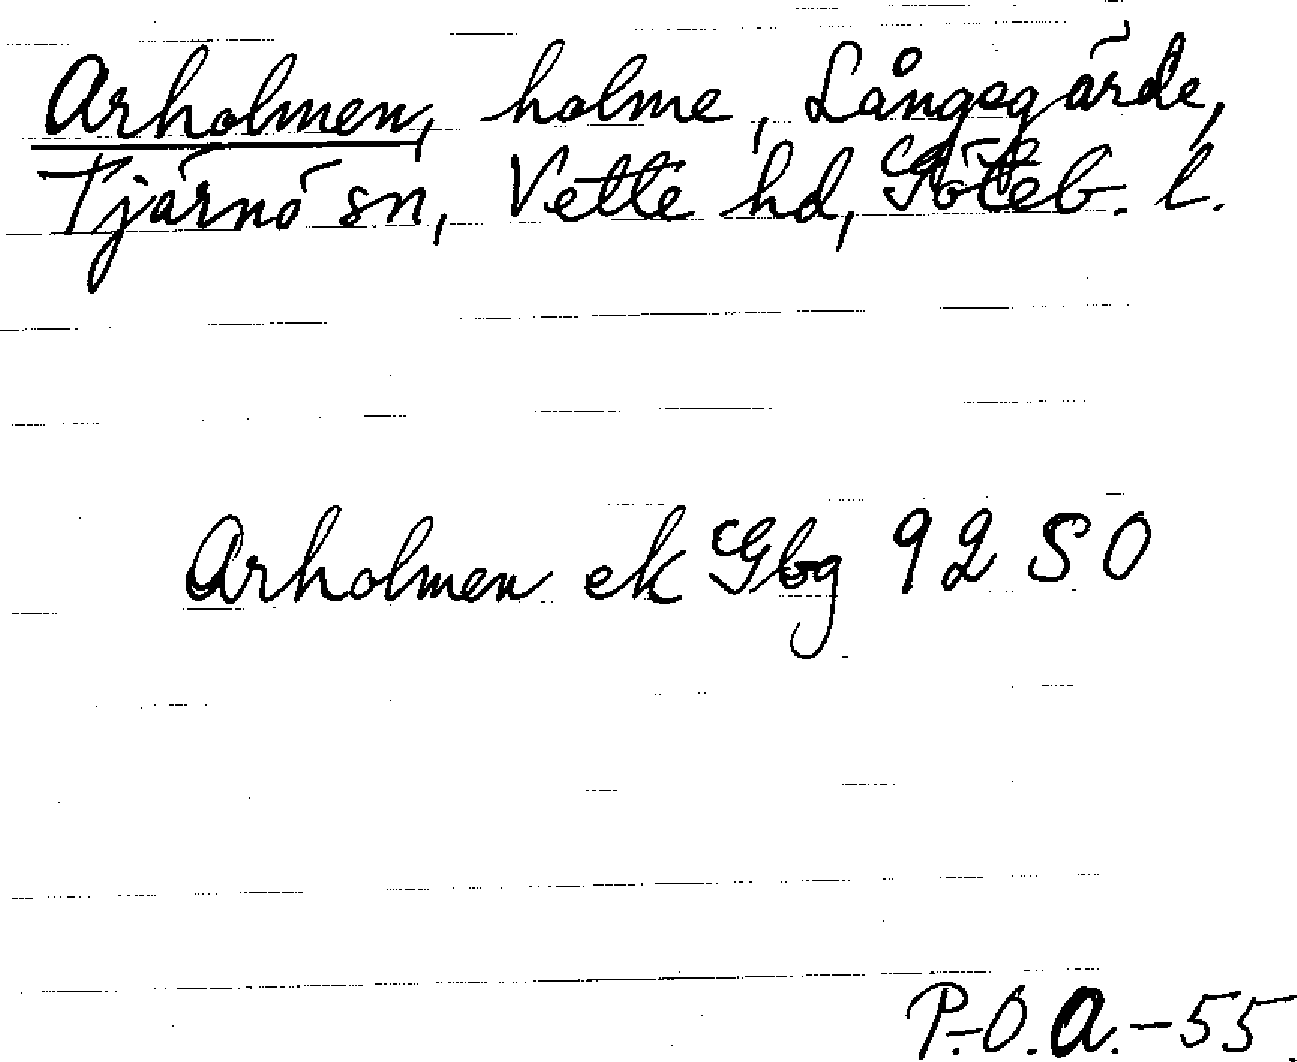 Arholmen, holme, Långegärde,
Tjärnö sn, Vette hd, Göteb. l.
Arholmen ek Gbg 92 SO
P.-O. A. -55